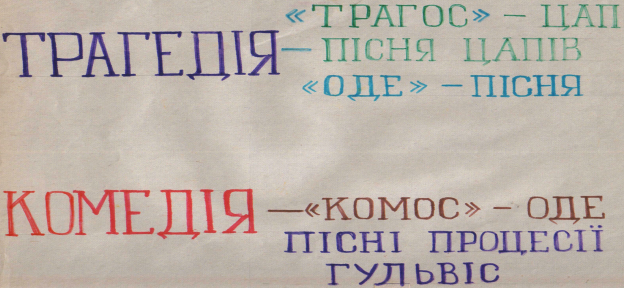 «ТРАГОС» – ЦАП
ТРАГЕДІЯ – ПІСНЯ ЦАПІВ
«ОДЕ» – ПІСНЯ
КОМЕДІЯ – «КОМОС» – ОДЕ
ПІСНІ ПРОЦЕСІЇ
ГУЛЬВІС